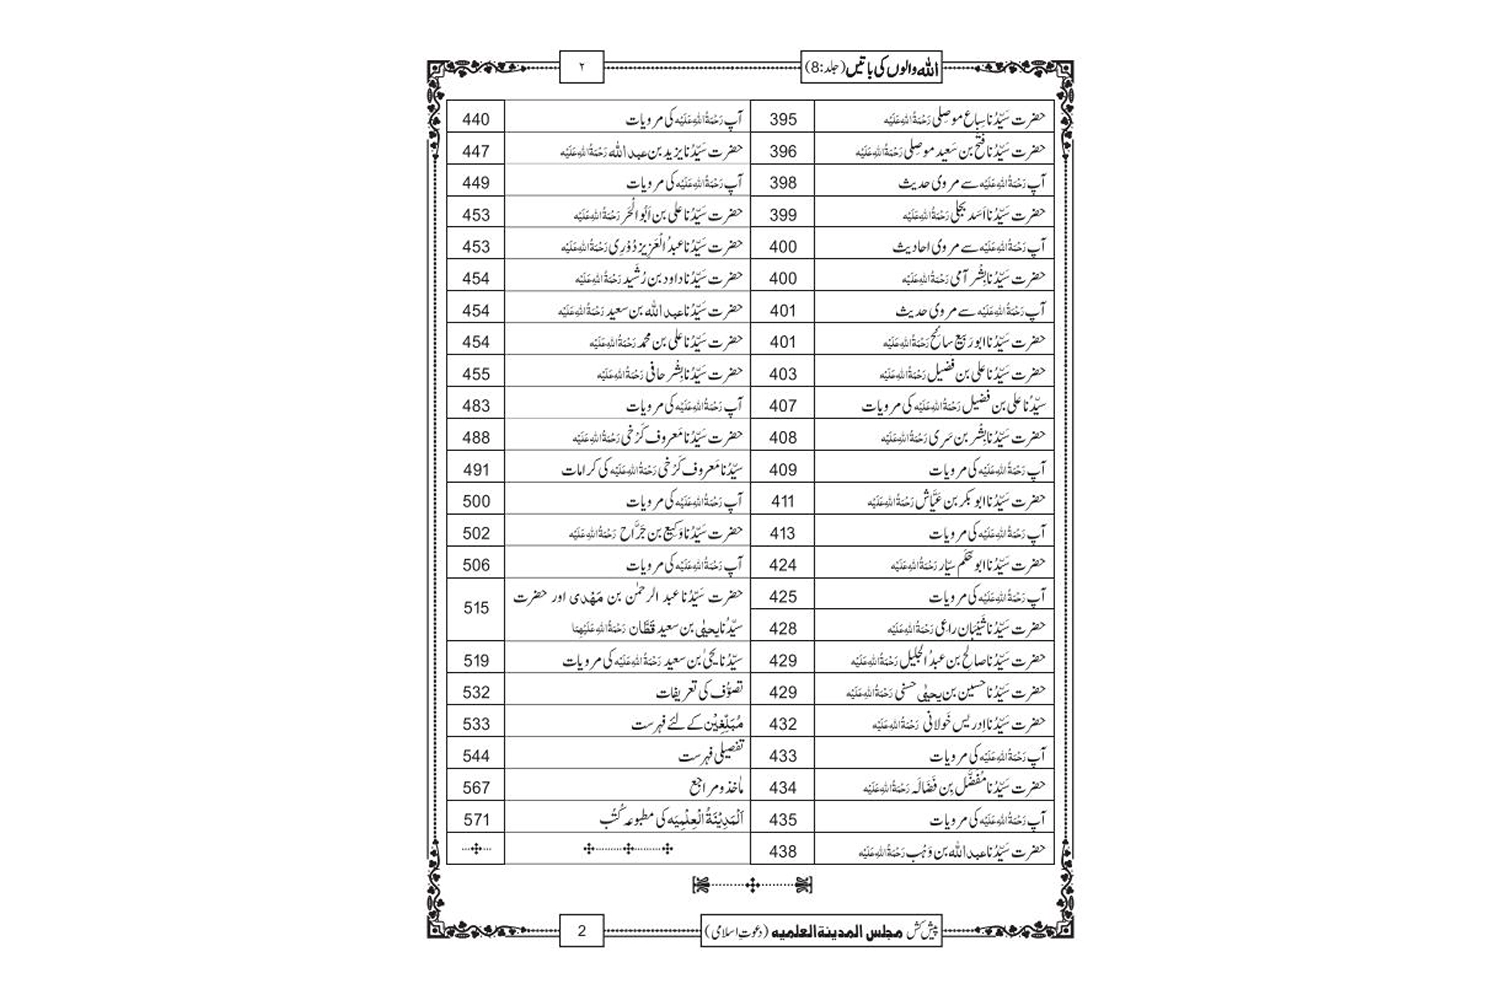 اللہ والوں کی باتیں (جلد:8)
۲
حضرت سَیِّدُنا سِباع موصلی رَحْمَۃُ اللہِ عَلَیْہ 395
حضرت سَیِّدُنا فتح بن سَعید موصلی رَحْمَۃُ اللہِ عَلَیْہ 396
آپ رَحْمَۃُ اللہِ عَلَیْہ سے مروی حدیث 398
حضرت سَیِّدُنا اَسَد بجلی رَحْمَۃُ اللہِ عَلَیْہ 399
آپ رَحْمَۃُ اللہِ عَلَیْہ سے مروی احادیث 400
حضرت سَیِّدُنا بِشْر آمی رَحْمَۃُ اللہِ عَلَیْہ 400
آپ رَحْمَۃُ اللہِ عَلَیْہ سے مروی حدیث 401
حضرت سَیِّدُنا ابو رَبیع سائح رَحْمَۃُ اللہِ عَلَیْہ 401
حضرت سَیِّدُنا علی بن فضیل رَحْمَۃُ اللہِ عَلَیْہ 403
سَیِّدُنا علی بن فضیل رَحْمَۃُ اللہِ عَلَیْہ کی مرویات 407
حضرت سَیِّدُنا بِشْر بن سَری رَحْمَۃُ اللہِ عَلَیْہ 408
آپ رَحْمَۃُ اللہِ عَلَیْہ کی مرویات 409
حضرت سَیِّدُنا ابو بکر بن عَیَّاش رَحْمَۃُ اللہِ عَلَیْہ 411
آپ رَحْمَۃُ اللہِ عَلَیْہ کی مرویات 413
حضرت سَیِّدُنا ابو حَکَم سیّار رَحْمَۃُ اللہِ عَلَیْہ 424
آپ رَحْمَۃُ اللہِ عَلَیْہ کی مرویات 425
حضرت سَیِّدُنا شَیْبان راعی رَحْمَۃُ اللہِ عَلَیْہ 428
حضرت سَیِّدُنا صالح بن عبدُ الجلیل رَحْمَۃُ اللہِ عَلَیْہ 429
حضرت سَیِّدُنا حسین بن یحیٰی حسنی رَحْمَۃُ اللہِ عَلَیْہ 429
حضرت سَیِّدُنا اِدریس خَولانی رَحْمَۃُ اللہِ عَلَیْہ 432
آپ رَحْمَۃُ اللہِ عَلَیْہ کی مرویات 433
حضرت سَیِّدُنا مُفَضَّل بِن فَضَالَہ رَحْمَۃُ اللہِ عَلَیْہ 434
آپ رَحْمَۃُ اللہِ عَلَیْہ کی مرویات 435
حضرت سَیِّدُنا عبد اللہ بن وَہْب رَحْمَۃُ اللہِ عَلَیْہ 438
آپ رَحْمَۃُ اللہِ عَلَیْہ کی مرویات 440
حضرت سَیِّدُنا یزید بن عبد اللہ رَحْمَۃُ اللہِ عَلَیْہ 447
آپ رَحْمَۃُ اللہِ عَلَیْہ کی مرویات 449
حضرت سَیِّدُنا علی بن اَبُو الْحَر رَحْمَۃُ اللہِ عَلَیْہ 453
حضرت سَیِّدُنا عبدُ الْعَزِیز دُوْرِی رَحْمَۃُ اللہِ عَلَیْہ 453
حضرت سَیِّدُنا داود بن رُشَید رَحْمَۃُ اللہِ عَلَیْہ 454
حضرت سَیِّدُنا عبد اللہ بن سعید رَحْمَۃُ اللہِ عَلَیْہ 454
حضرت سَیِّدُنا علی بن محمد رَحْمَۃُ اللہِ عَلَیْہ 454
حضرت سَیِّدُنا بِشْر حافی رَحْمَۃُ اللہِ عَلَیْہ 455
آپ رَحْمَۃُ اللہِ عَلَیْہ کی مرویات 483
حضرت سَیِّدُنا مَعروف کَرْخی رَحْمَۃُ اللہِ عَلَیْہ 488
سَیِّدُنا مَعروف کَرْخی رَحْمَۃُ اللہِ عَلَیْہ کی کرامات 491
آپ رَحْمَۃُ اللہِ عَلَیْہ کی مرویات 500
حضرت سَیِّدُنا وَکِیع بن جَرَّاح رَحْمَۃُ اللہِ عَلَیْہ 502
آپ رَحْمَۃُ اللہِ عَلَیْہ کی مرویات 506
حضرت سَیِّدُنا عبد الرحمٰن بن مَہْدی اور حضرت
سَیِّدُنا یحیٰی بن سعید قَطّان رَحْمَۃُ اللہِ عَلَیْہِمَا 515
سَیِّدُنا یحییٰ بن سعید رَحْمَۃُ اللہِ عَلَیْہ کی مرویات 519
تصوُّف کی تعریفات 532
مُبَلِّغِیْن کے لئے فہرست 533
تفصیلی فہرست 544
ماخذ و مراجع 567
اَلْمَدِیْنَۃُ الْعِلْمِیَہ کی مطبوعہ کُتُب 571
پیش کش مجلس المدینۃ العلمیہ (دعوتِ اسلامی)
2